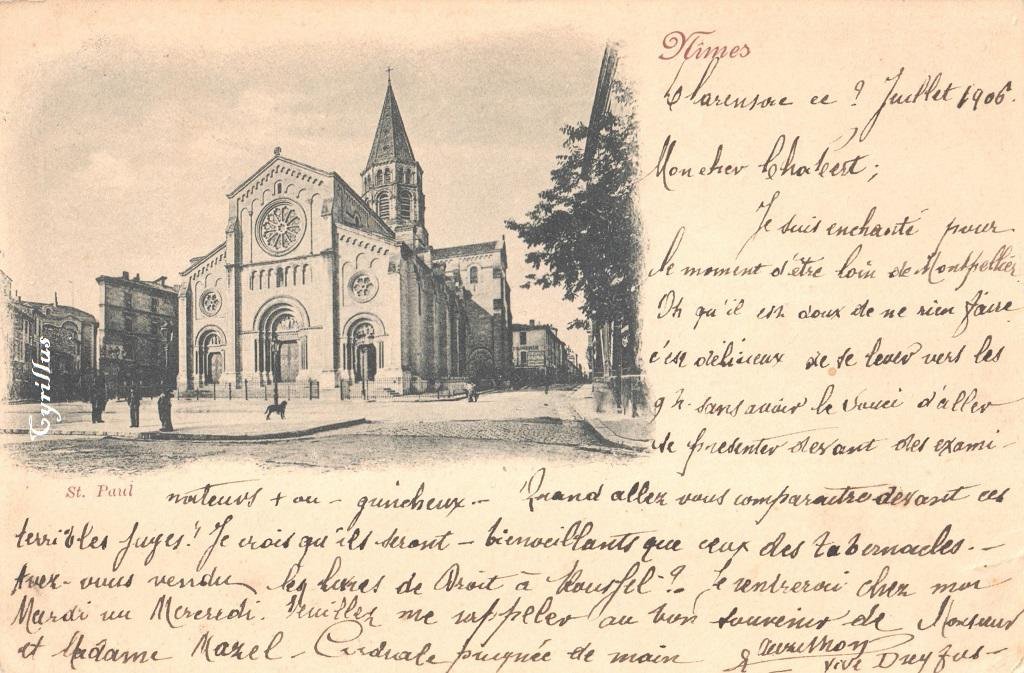 Nîmes
Clarensac ce ? Juillet 1906.
Mon cher Chabert;
Je suis enchanté pour
le moment d'être loin de Montpellier
Oh qu'il est doux de ne rien faire
c'est délicieux de se lever vers les
9h. sans avoir le souci d'aller
se présenter devant des exami-
St. Paul
nateurs + ou - guincheux. - Quand allez vous comparaitre devant ces
terribles juges? Je crois qu'ils seront - bienveillants que ceux des tabernacles. -
Avez-vous vendu les livres de Droit à Roussel-? Je rentrerai chez moi
Mardi ou Mercredi. Veuillez me rappeler au bon souvenir de Monsieur
et Madame Mazel - Cordiale poignée de main
Vive Dreyfus -
Cyrillus